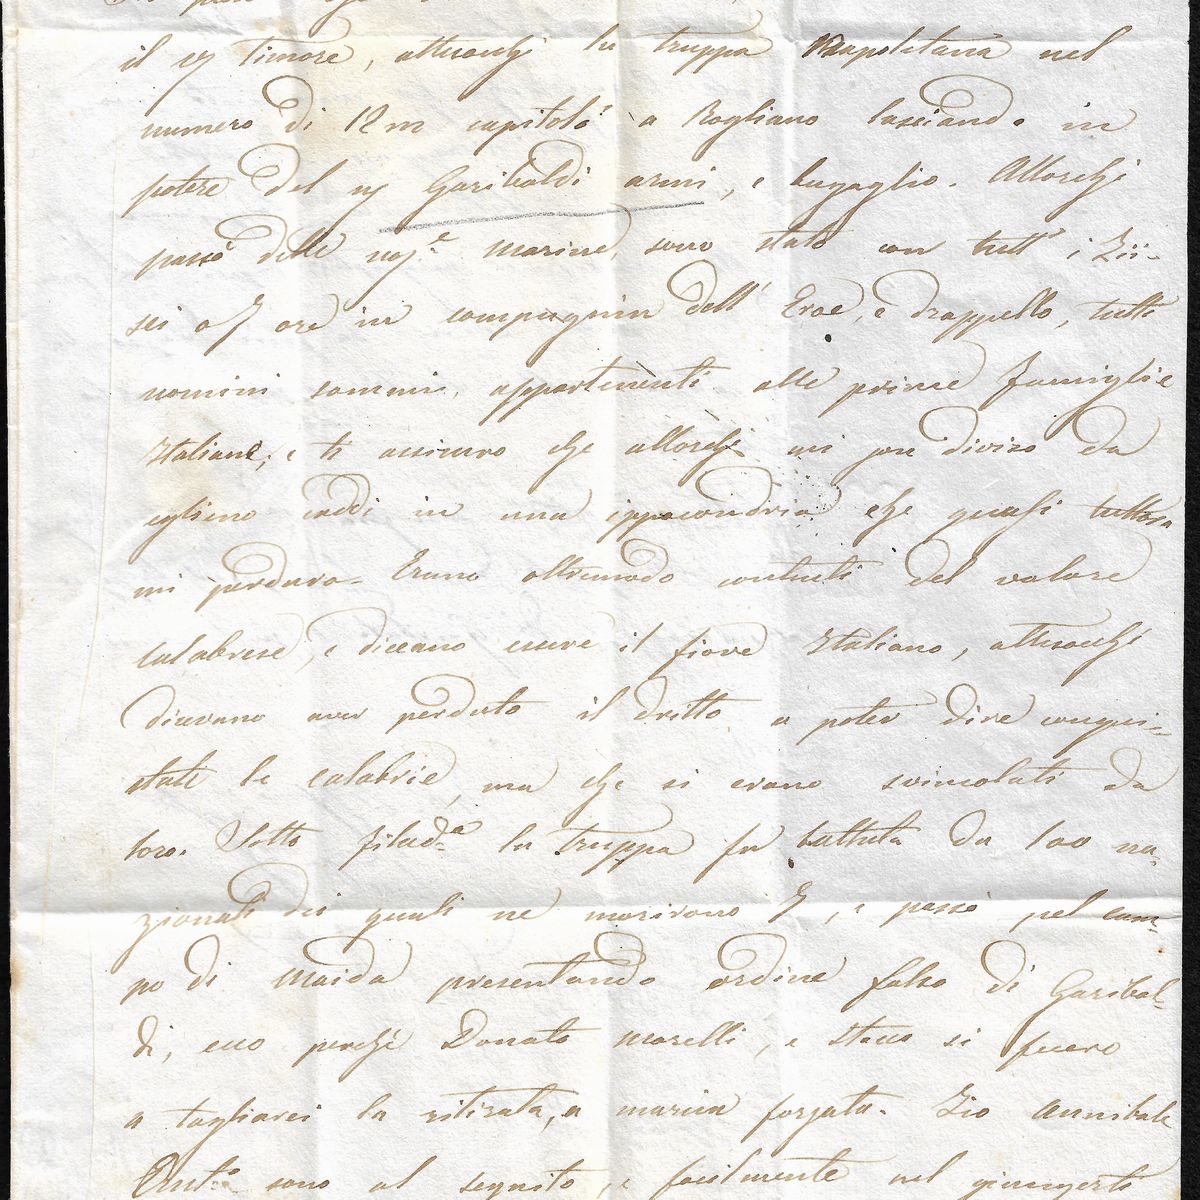 il timore, attesocché la truppa Napoletana nel
numero di 12m capitolò a Rogliano lasciando in
potere del Garibaldi armi, e bagaglio. Allorché
passò dalle marine, sono stato con tutt' i Zii
sei o 7 ore in compagnia dell' Eroe, e drappello, tutti
uomini sommi, appartenenti alle prime famiglie
Italiane, e ti assicuro che allorché mi diviso da
eglino caddi in una ippocondria che quasi tuttora
mi perdura. Erano oltremodo contenti del valore
calabrese, e diceano essere il fiore Italiano, attesocché
dicevano aver perduto il dritto a poter dire conqui-
state le calabrie, ma che si erano svincolati da
loro. Sotto Filad.a la truppa fu battuta da 100 na-
zionali dei quali ne morirono 7, e passò pel cam-
po di Maida presentando ordine falso di Garibal-
di, ecco perché Donato Morelli, e Stocco si fecero
a tagliarci la ritirata, a marcia forzata. Zio Annibale
sono al seguito, e facilmente nel giungerti